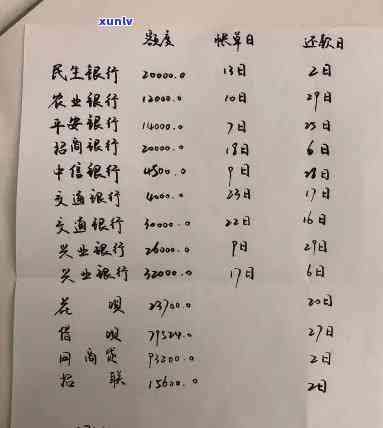 xunlv
.com
额度 帐单日 还款日
民生银行 20000.0 13日 2日
农业银行 12000.0 10日 29日
平安银行 14000.0 7日 25日
招商银行 20000.0 18日 6日
中信银行 4500.0 9日 28日
交通银行 4000.0 23日 17日
交通银行 30000.0 22日 16日
兴业银行 26000.0 9日 29日
兴业银行 32000.0 17日 6日
花呗 23700.0 20日
借呗 79524.0 27日
网商贷 93200.0 2日
招联 15600.0 2日